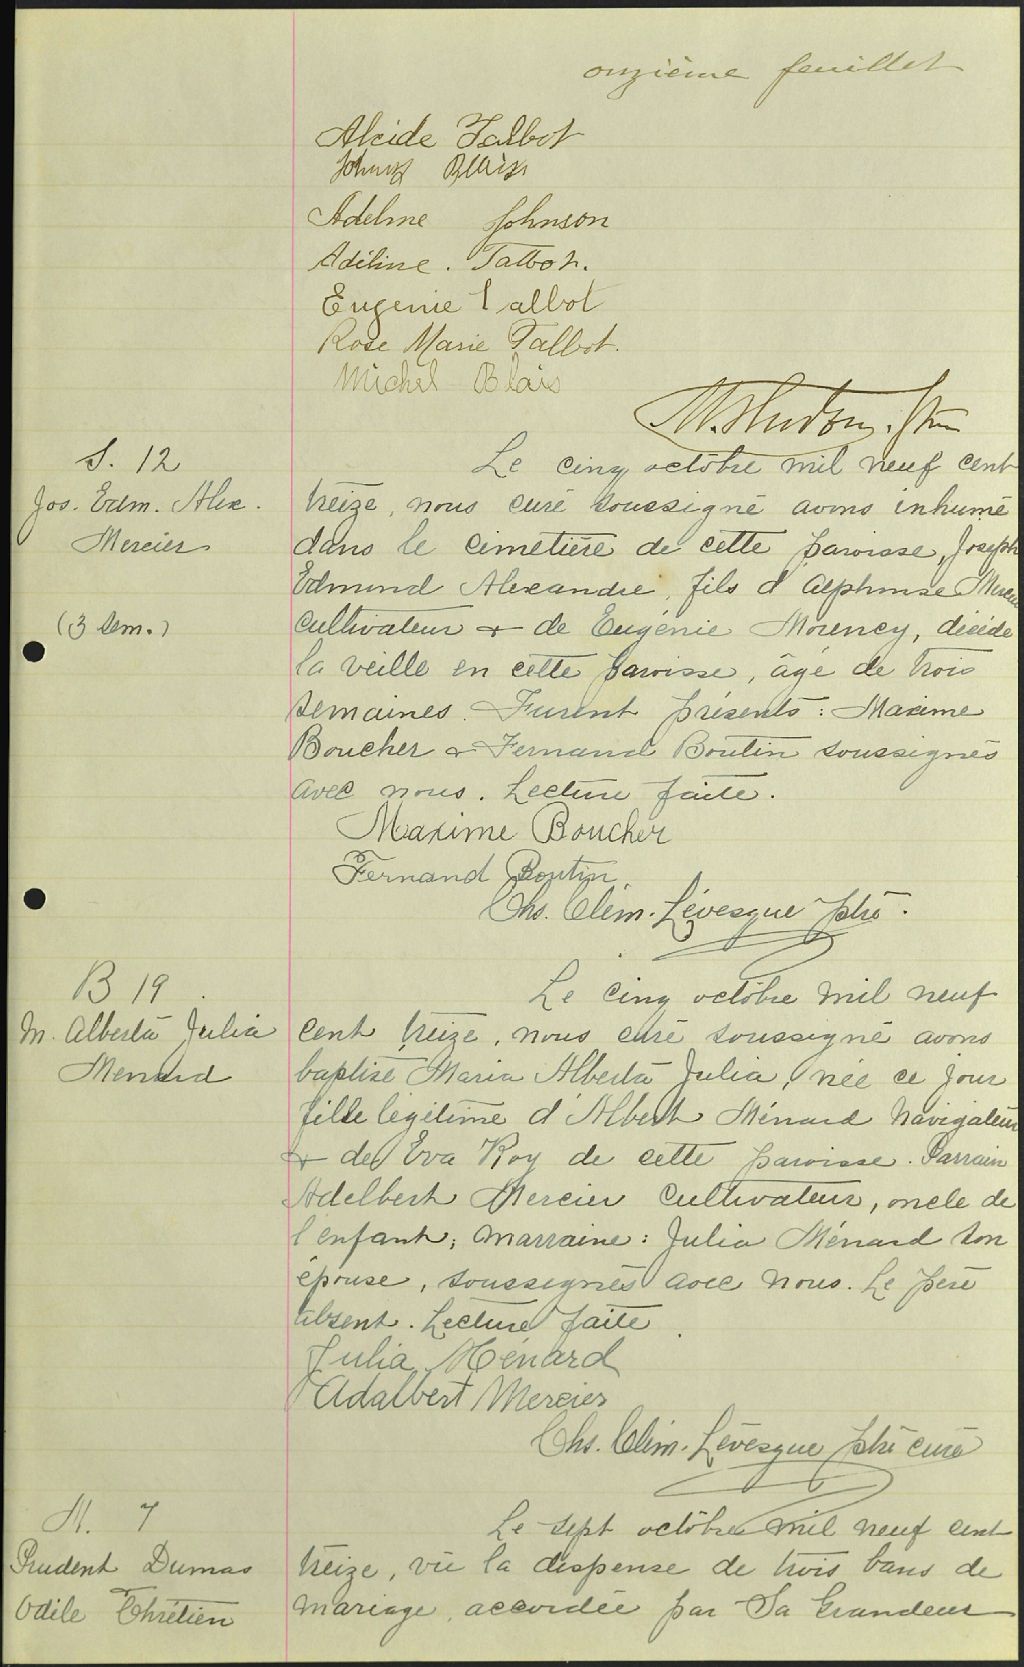 onzième feuillet
Alcide Talbot
Johnny Blais
Adelme Johnson
Adéline. Talbot.
Eugenie Talbot
Rose Marie Talbot.
Michel Blais
S. 12
Jos. Edm. Alex.
Mercier
(3 sem.)
Le cinq octobre mil neuf cent
treize, nous curé soussigné avons inhumé
dans le cimetière de cette paroisse, Joseph
Edmund Alexandre, fils d'Alphonse Mercier
cultivateur & de Eugénie Morency, décédé
la veille en cette paroisse, âgé de trois
semaines. Furent présents: Maxime
Boucher & Fernand Boutin soussignés
avec nous. Lecture faite.
Maxime Boucher
Fernand Boutin
Chs. Clém. Lévesque ptre.
B 19
M. Alberta Julia
Menard
Le cinq octobre mil neuf
cent treize, nous curé soussigné avons
baptisé Maria Alberta Julia, née ce jour
fille légitime d'Albert Ménard navigateur
& de Eva Roy de cette paroisse. Parrain
Adelbert Mercier cultivateur, oncle de
l'enfant; marraine: Julia Ménard son
épouse, soussignés avec nous. Le père
absent. Lecture faite
Julia Ménard
Adalbert Mercier
Chs. Clém. Lévesque ptre curé
M. 7
Prudent Dumas
Odile Chrétien
Le sept octobre mil neuf cent
treize, vu la dispense de trois bans de
mariage, accordée par Sa Grandeur